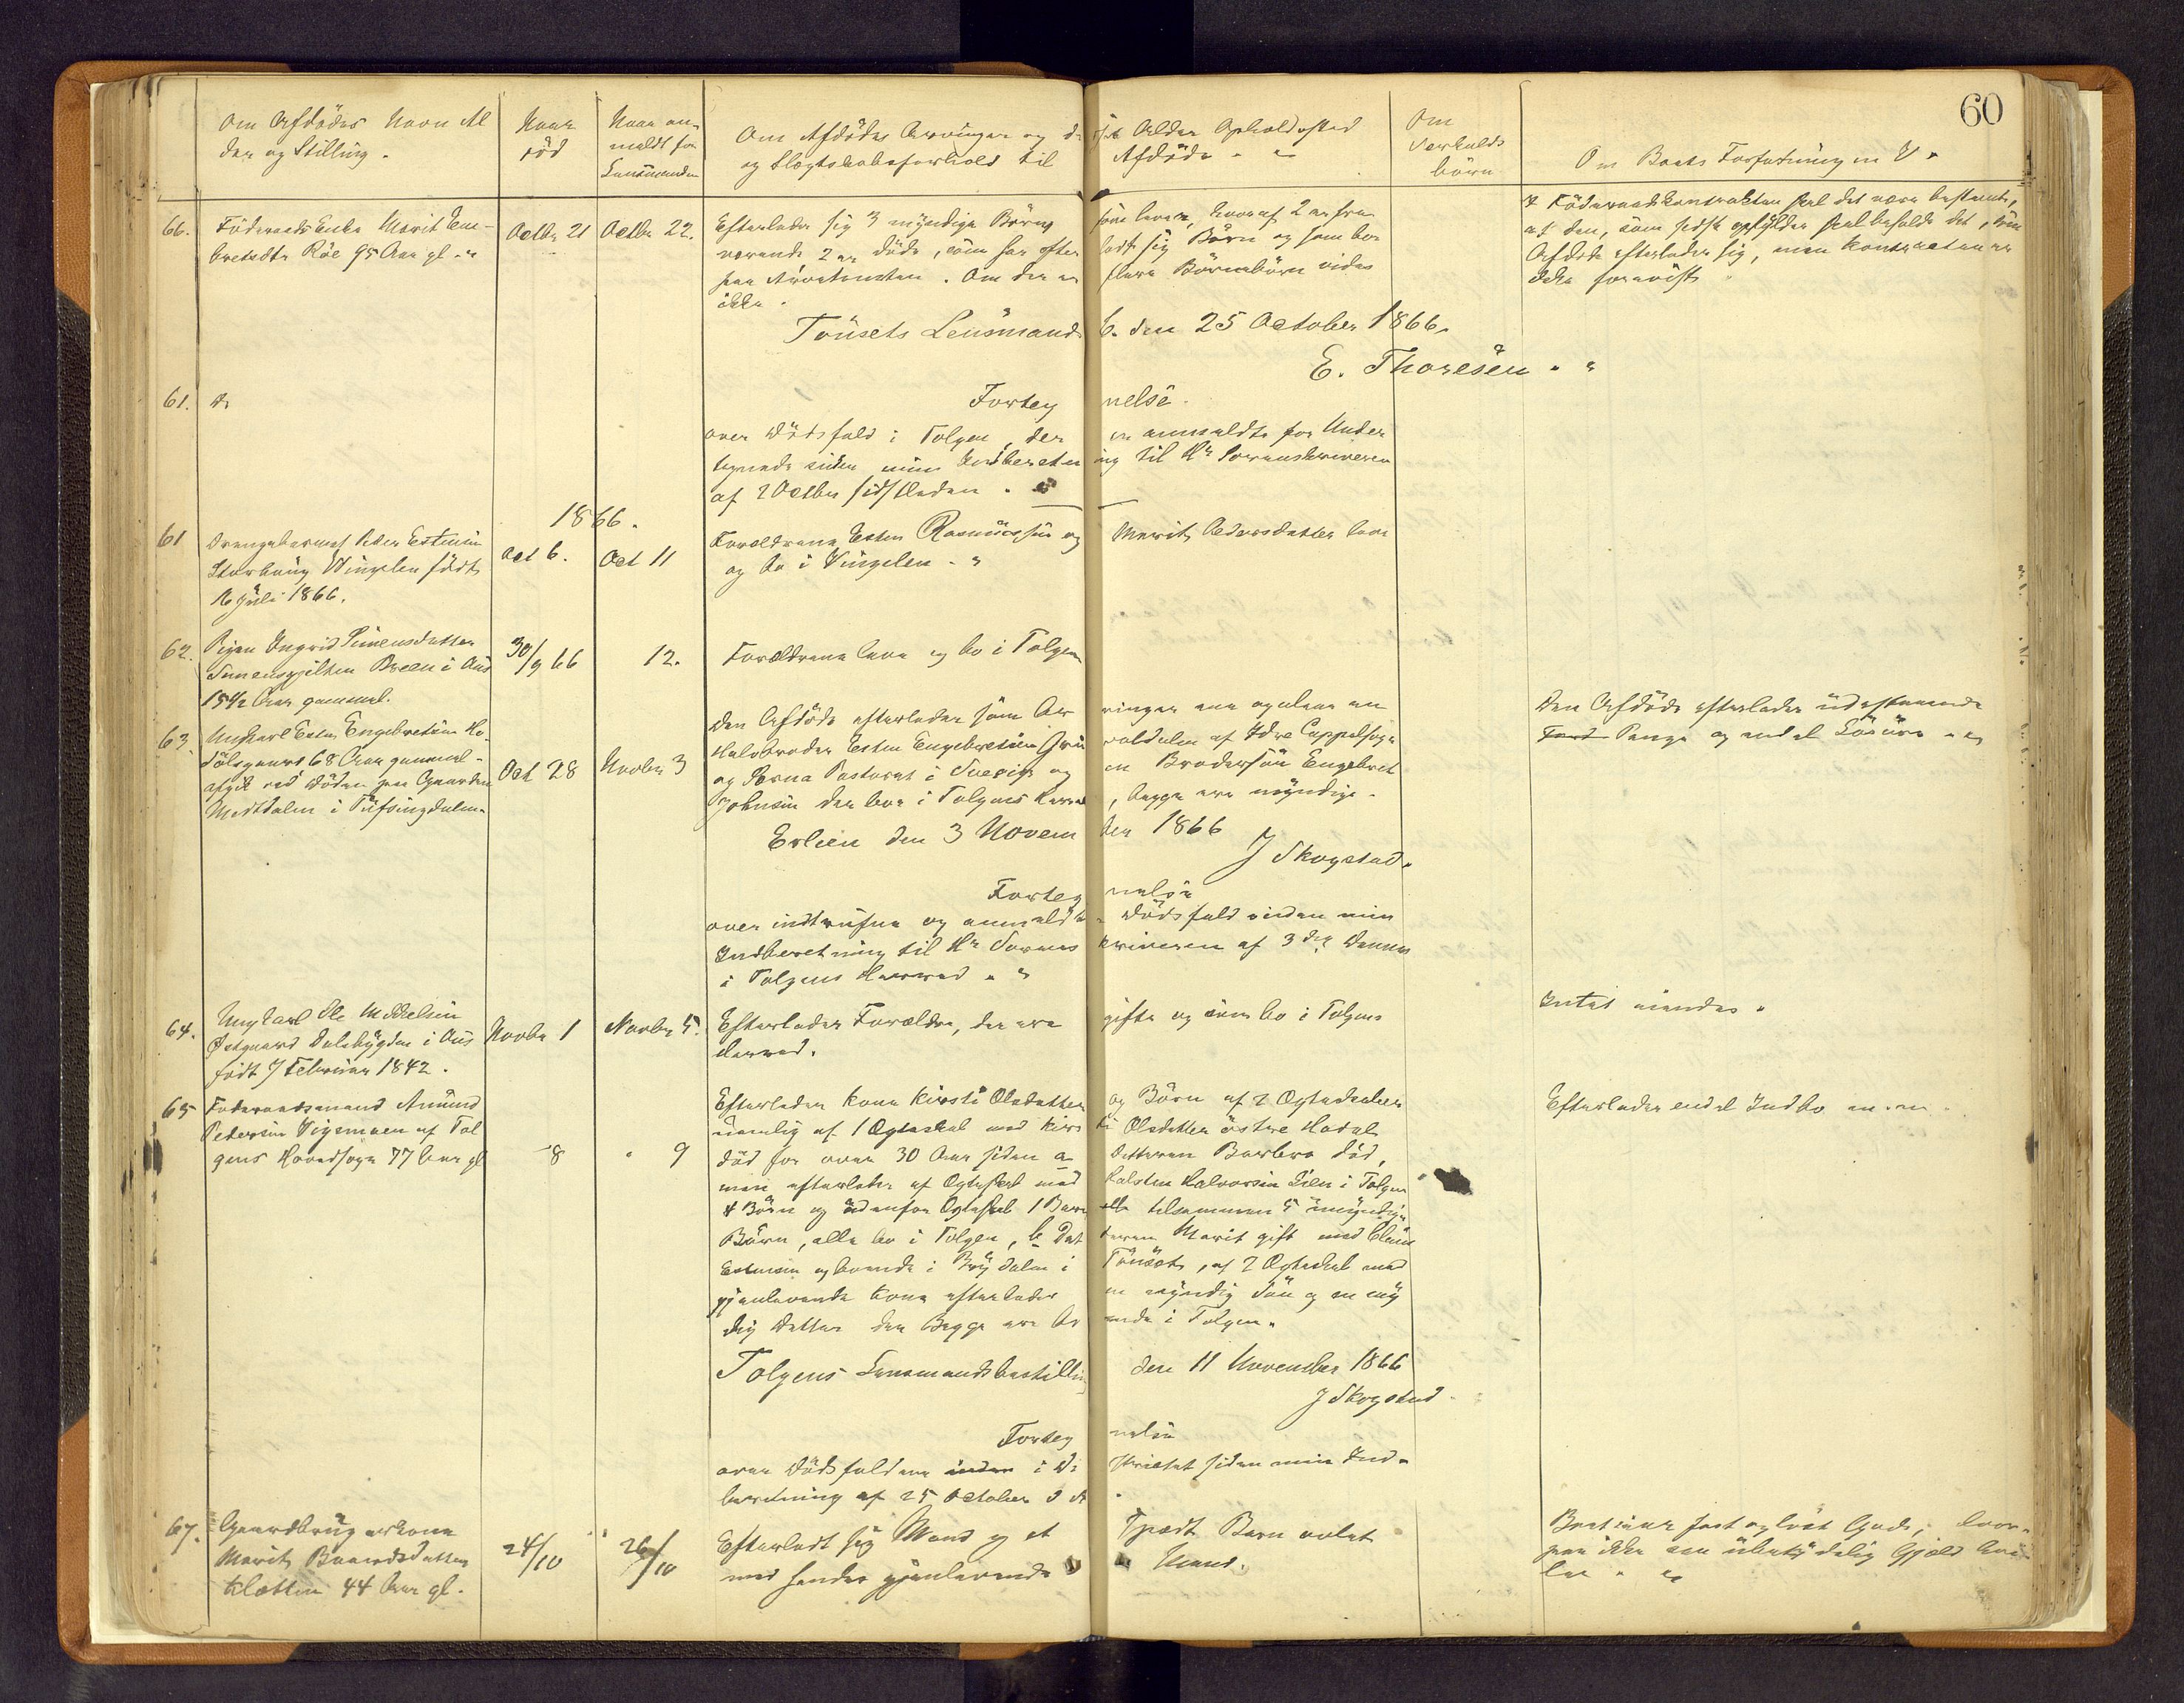 60
Om Afdödes Navn Al
der og Stilling.
Naar
död
Naar an-
meldt for
Lensmanden
Om Afdödes Arvinger og deres Alder Opholdssted
og Slægtskabsforhold til Afdöde
Om
Særkulds
börn
Om Boets Forfatning m V.
66. Föderaads Enke Marit Em-
bretsdtr Röe 95 Aar gl.
Octbr 21
Octbr 22.
Efterlader sig 3 myndige Börn som lever, hvoraf 2 er fra
værende 2 er döde, som har efterladt sig Börn og som bor
paa . Om der er flere Börnebörn vides
ikke.
I Föderaadskontrakten skal det være bestemt,
at den, som sidst opfylder skal beholde det, som
Afdöde efterlader sig, men Kontracten er
ikke forevist
Tönsets Lensmands b. den 25 October 1866.
E. Thoresen
61.
Fortegnelse.
over Dödsfald i Tolgen, der er anmeldte for Under
tegnede siden min Indberetning til Hr Sorenskriveren
af 2 Octbr sidstleden.
1866.
61 Drengebarnet Peder Estensen
Storbæng Vingelen födt
16 Juli 1866.
Oct 6.
Oct 11
Forældrene Esten Rasmussen og Marit Pedersdatter leve
og bo i Vingelen.
62. Pigen Ingrid Simensdatter
Simensgjelten Breen i Aus
15 1/2 Aar gammel.
30/9 66
12.
Forældrene leve og bo i Tolgen
63. Ungkarl Esten Engebretsen Ho-
dölsgaard 68 Aar gammel-
afgik ved Döden paa Gaarden
Midtdalen i Tufsingdalen.
Oct 28
Novbr 3
Den Afdöde efterlader som Arvinger en
Halvbroder Esten Engebretsen af Idre Cappelsogn
og Serna Pastorat i Sverige og en Brodersön Engebret
Johnsen der bor i Tolgens Herred, begge ere myndige.
Den Afdöde efterlader udestaaende
Penge og endel Lösöre
Erlien den 3 November 1866
J Skogstad.
Fortegnelse
over indtrufne og anmeldte Dödsfald siden min
Indberetning til Hr Sorenskriveren af 3die Dennes
i Tolgens Herred
64. Ungkarl Ole Mikkelsen
Östgaard Dalsbygden i Aus
födt 7 Februar 1842.
Novbr 1
Novbr 5.
Efterlader Forældre, der ere gifte og som bo i Tolgens
Herred.
Intet eiendes.
65 Föderaadsmand Amund
Pedersen Vigemoen af Tol
gens Hovedsogn 77 Aar gl
- 8
" 9
Efterlader Kone Kirsti Olsdatter og Börn af 2 Ægteskaber
nemlig af 1 Ægteskab med Kirsti Olsdatter östre Hodal
död for over 30 Aar siden a Datteren Barbro död,
men efterlader af Ægteskab med Halsten Halvorsen Lien i Tolgen
4 Börn og udenfor Ægteskab 1 Barn tilsammen 5 umyndige
Börn, alle bo i Tolgen, b Datteren Marit gift med
Estensen og boende i Brydalen i Tönset, af 2 Ægteskab med
gjenlevende Kone efterlader en myndig Sön og en myn
dig Datter der Begge ere boende i Tolgen.
Efterlader endel Indbo
Tolgens Lensmandsbestilling den 11 November 1866
J Skogstad
Fortegnelse
over Dödsfaldene i Districtet siden min Ind-
beretning af 25 October d A
67. Gaardbrugerkone
Marit Baardsdatter
Kletten 44 Aar gl.
24/10
26/10
Efterladt sig Mand og et Spædt Barn avlet
med hendes gjenlevende Mand.
Boet eier fast og löst Gods, hvor-
paa ikke en ubetydelig Gjæld hvi-
ler